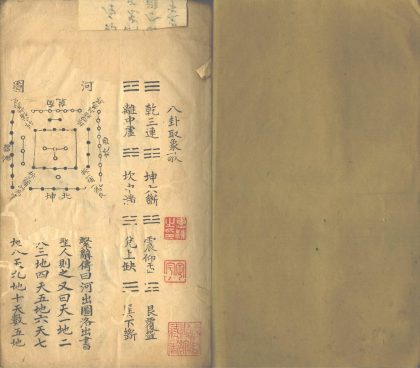 八卦取象歌
乾三連 坤六斷 震仰盂 艮覆盌
離中虛 坎中滿 兌上缺 巽下斷
河圖
北坤
繫辭傳曰河出圖洛出書
聖人則之又曰天一地二
天三地四天五地六天七
地八天九地十天數五地